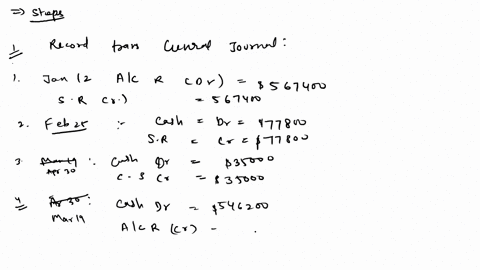 ⇒ Steps
1. Record trans General Journal:
1. Jan 12 A/c R (Dr) = $567400
S.R (r.) = 567400
2. Feb 25 :- Cash = Dr = $77800
S.R = Cr = $77800
3. Apr 30 :. Cash Dr = $35000
C.S Cr = $35000
4. Mar 19 : Cash Dr = $546200
A/c R (Cr) -